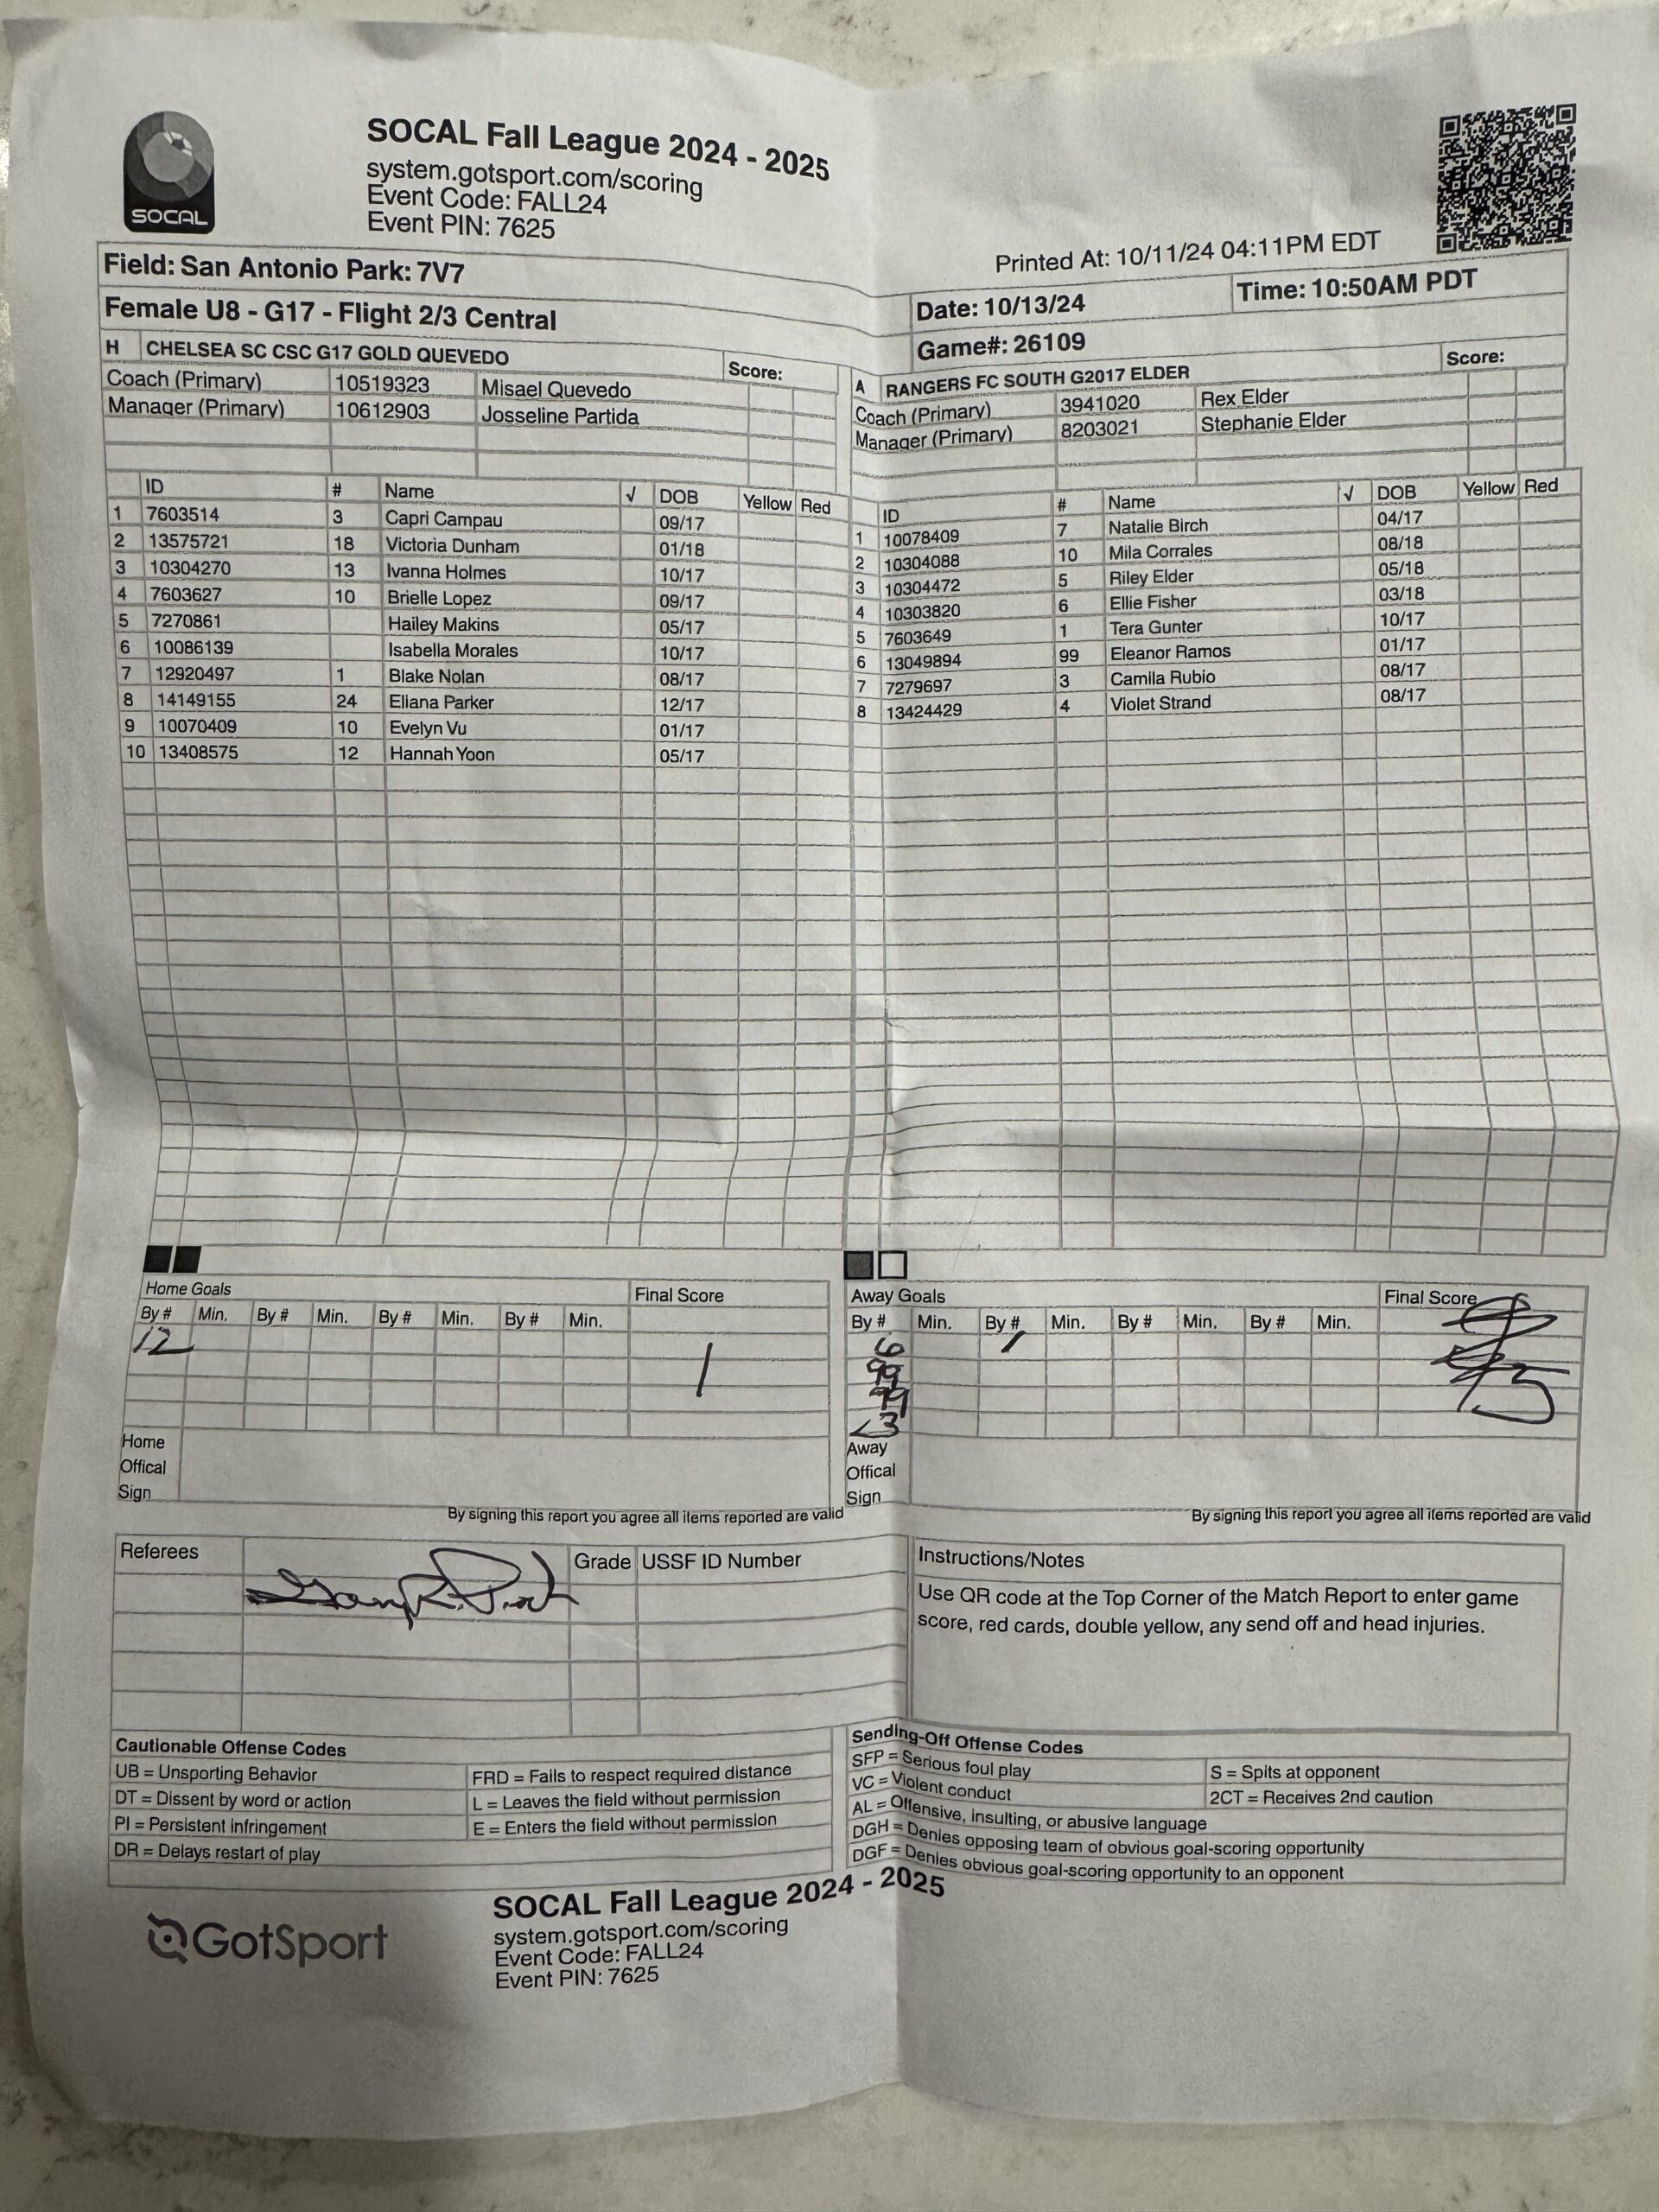 SOCAL
SOCAL Fall League 2024 - 2025
system.gotsport.com/scoring
Event Code: FALL24
Event PIN: 7625
Printed At: 10/11/24 04:11PM EDT
Field: San Antonio Park: 7V7
Date: 10/13/24 Time: 10:50AM PDT
Female U8 - G17 - Flight 2/3 Central
Game#: 26109
H CHELSEA SC CSC G17 GOLD QUEVEDO Score:
Coach (Primary) 10519323 Misael Quevedo
Manager (Primary) 10612903 Josseline Partida
A RANGERS FC SOUTH G2017 ELDER Score:
Coach (Primary) 3941020 Rex Elder
Manager (Primary) 8203021 Stephanie Elder
ID # Name √ DOB Yellow Red
1 7603514 3 Capri Campau 09/17
2 13575721 18 Victoria Dunham 01/18
3 10304270 13 Ivanna Holmes 10/17
4 7603627 10 Brielle Lopez 09/17
5 7270861 Hailey Makins 05/17
6 10086139 Isabella Morales 10/17
7 12920497 1 Blake Nolan 08/17
8 14149155 24 Eliana Parker 12/17
9 10070409 10 Evelyn Vu 01/17
10 13408575 12 Hannah Yoon 05/17
ID # Name √ DOB Yellow Red
1 10078409 7 Natalie Birch 04/17
2 10304088 10 Mila Corrales 08/18
3 10304472 5 Riley Elder 05/18
4 10303820 6 Ellie Fisher 03/18
5 7603649 1 Tera Gunter 10/17
6 13049894 99 Eleanor Ramos 01/17
7 7279697 3 Camila Rubio 08/17
8 13424429 4 Violet Strand 08/17
Home Goals Final Score
By # Min. By # Min. By # Min. By # Min.
12
1
Home
Offical
Sign
By signing this report you agree all items reported are valid
Away Goals Final Score
By # Min. By # Min. By # Min. By # Min.
6 1
99
99
3
5
Away
Offical
Sign
By signing this report you agree all items reported are valid
Referees Grade USSF ID Number
Instructions/Notes
Use QR code at the Top Corner of the Match Report to enter game
score, red cards, double yellow, any send off and head injuries.
Cautionable Offense Codes
UB = Unsporting Behavior FRD = Fails to respect required distance
DT = Dissent by word or action L = Leaves the field without permission
PI = Persistent infringement E = Enters the field without permission
DR = Delays restart of play
Sending-Off Offense Codes
SFP = Serious foul play S = Spits at opponent
VC = Violent conduct 2CT = Receives 2nd caution
AL = Offensive, insulting, or abusive language
DGH = Denies opposing team of obvious goal-scoring opportunity
DGF = Denies obvious goal-scoring opportunity to an opponent
GotSport
SOCAL Fall League 2024 - 2025
system.gotsport.com/scoring
Event Code: FALL24
Event PIN: 7625